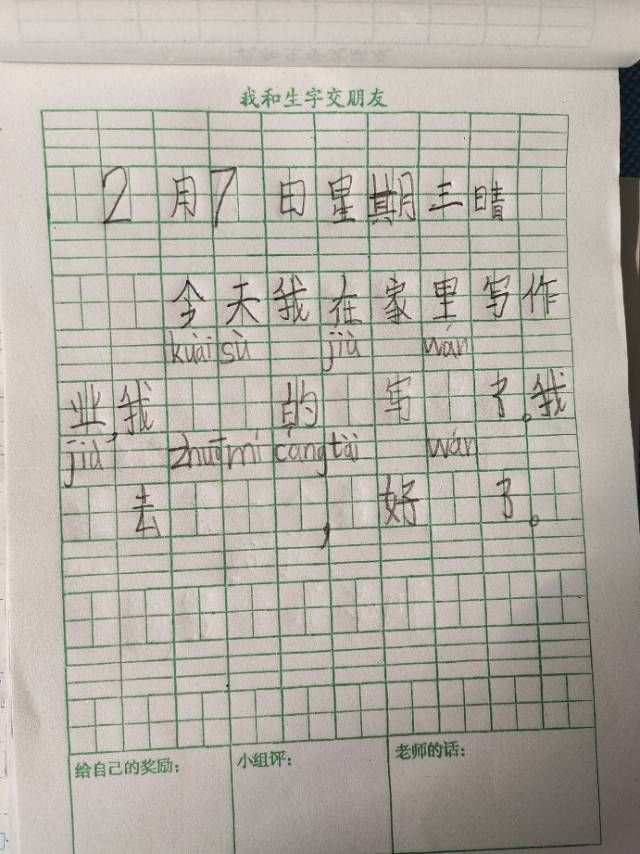 我和生字交朋友
2月7日星期三晴
今天我在家里写作
kuài sù jiù wán
业,我 的 写 了。我
jiù zhuō mí cáng tài wán
去 , 好 了。
给自己的奖励: 小组评: 老师的话: